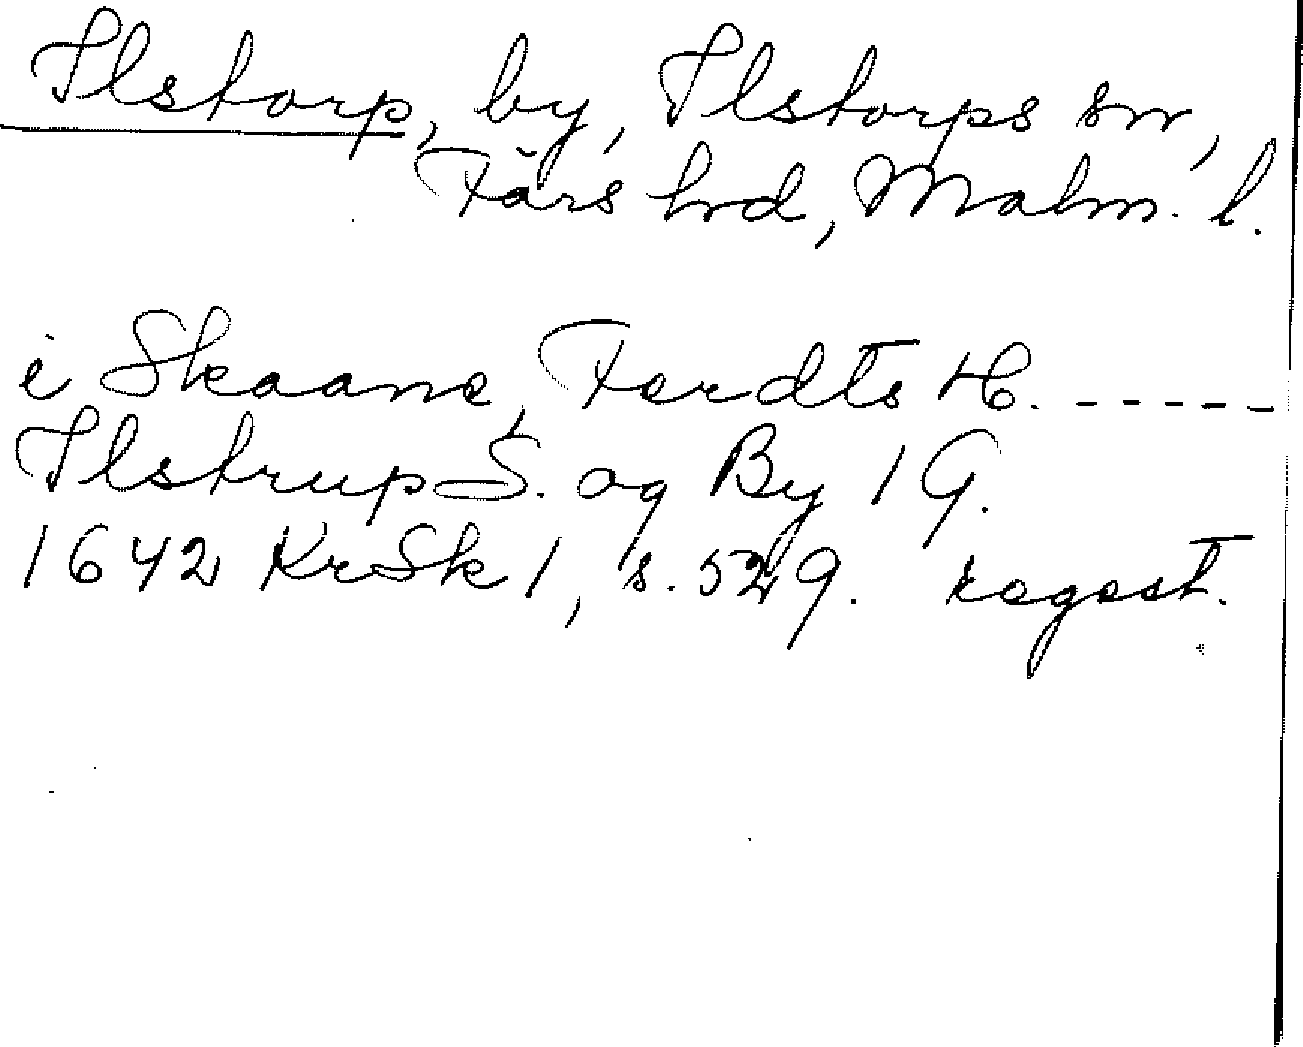 Ilstorp, by, Ilstorps sn,
Färs hrd, Malm. l.
i Skaane, Ferdts H. -----
Ilstrup S. og By 1 G.
1642 KrSk 1, s. 529. regest.